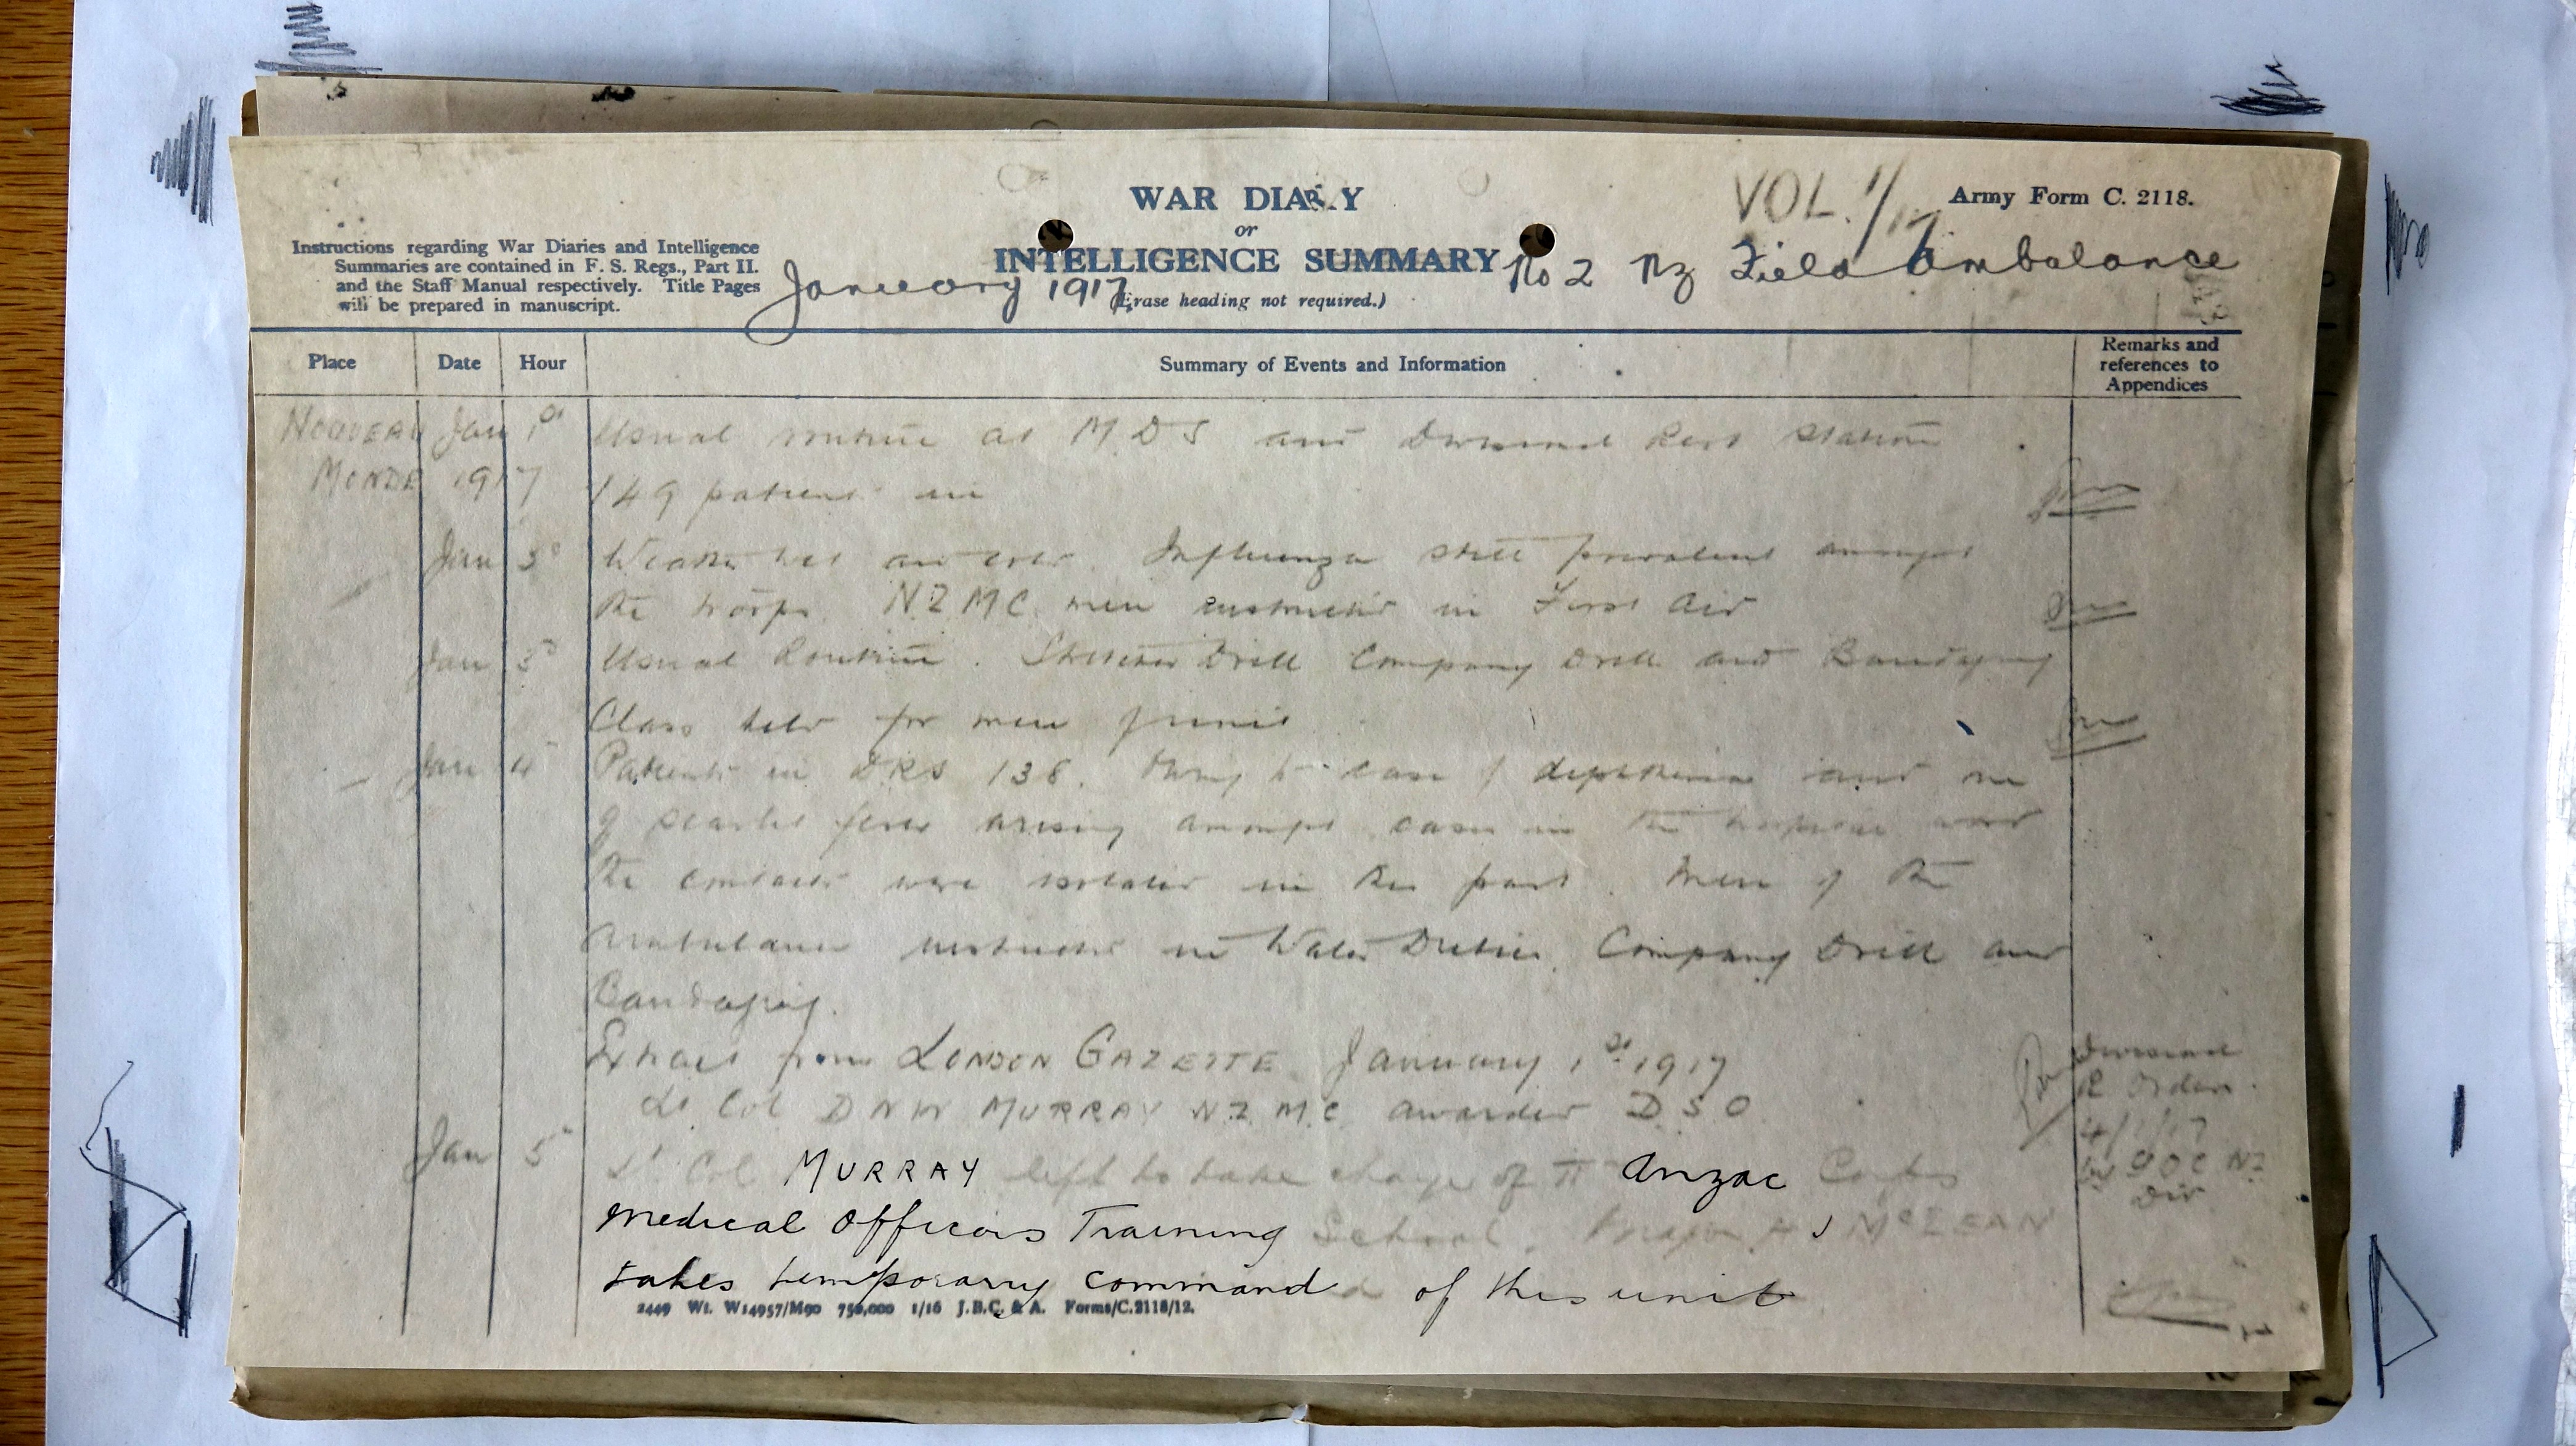 WAR DIARY
or
INTELLIGENCE SUMMARY
(Erase heading not required.)
VOL.
Army Form C. 2118.
Instructions regarding War Diaries and Intelligence
Summaries are contained in F. S. Regs., Part II.
and the Staff Manual respectively. Title Pages
will be prepared in manuscript.
January 1917.
No 2 NZ Field Ambulance
Place Date Hour Summary of Events and Information Remarks and
references to
Appendices
NOUVEAU Jan 1st Usual routine at M.D.S and Divisional Rest Station
MONDE 1917 149 patients in
Jan Weather wet and cold. Influenza still prevalent amongst
the troops. N.Z.M.C. men instructed in First Aid
Jan 3d Usual Routine. Stretcher Drill Company Drill and Bandaging
Class held for men of unit
Jan 4 Patients in DRS 138. Owing to case of diphtheria and one
of scarlet fever arising amongst cases in the hospital ward
the contacts were isolated in the . Men of the
Ambulance instructed in Water Duties, Company Drill and
Bandaging.
Extract from LONDON GAZETTE January 1st 1917
Lt Col D N W MURRAY N.Z.M.C. awarded D.S.O.
Divisional
R Orders
4/1/17
by GOC NZ
Div
Jan 5 Lt Col MURRAY left to take charge of II Anzac Corps
Medical Officers Training School. Major A J McLEAN
takes temporary command of this unit
2449 Wt. W14957/M90 750,000 1/16 J.B.C. & A. Forms/C.2118/12.